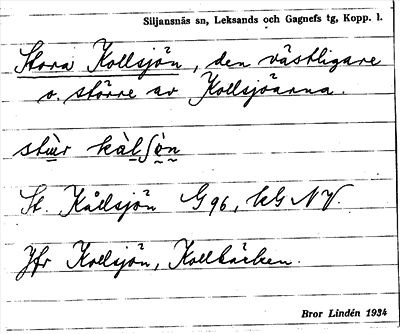 Siljansnäs sn, Leksands och Gagnefs tg, Kopp. l.
Stora Kollsjön, den västligare
o. större av Kollsjöarna.
stùr kàlʃòn
St. Kållsjön G96, kG NV.
Jfr Kollsjön, Kollbäcken.
Bror Lindén 1934